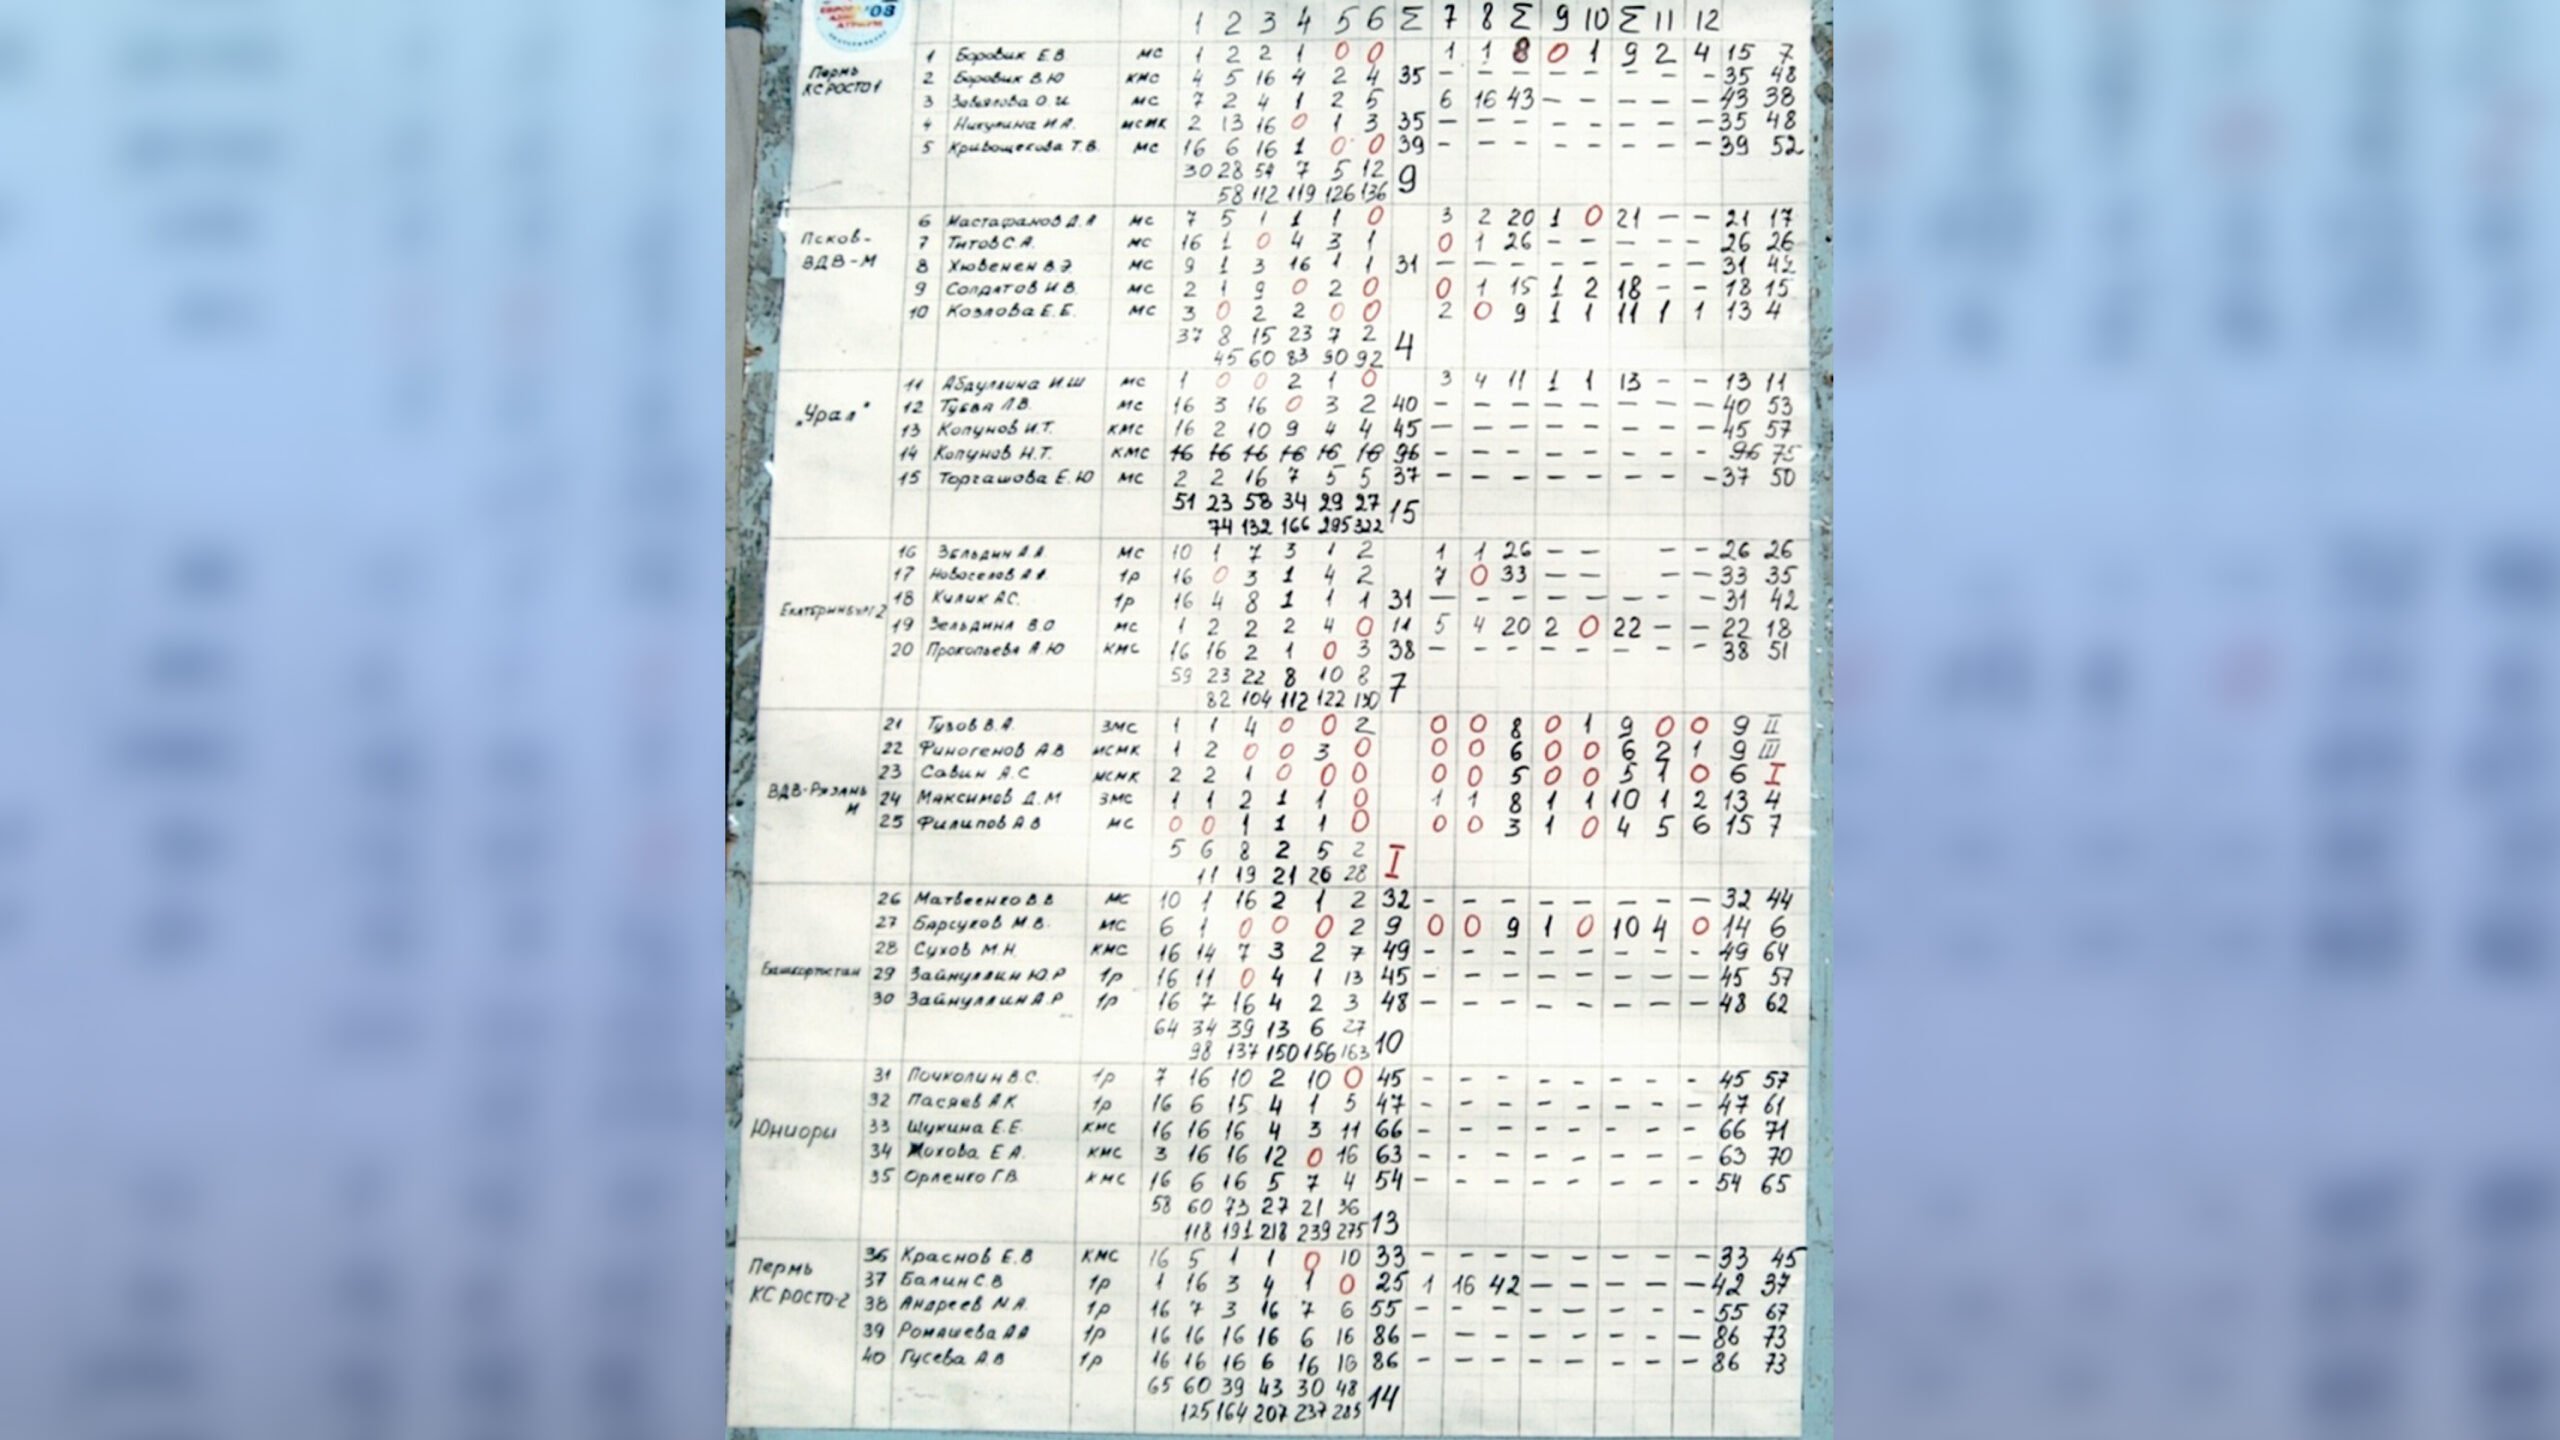 '08
1 2 3 4 5 6 Σ 7 8 Σ 9 10 Σ 11 12
Пермь КС РОСТО 1
1 Боровик Е.В. мс 1 2 2 1 0 0 1 1 8 0 1 9 2 4 15 7
2 Боровик В.Ю кмс 4 5 16 4 2 4 35 - - - - - - - - 35 48
3 Завьялова О.И мс 7 2 4 1 2 5 6 16 43 - - - - - 43 38
4 Никулина И.А. мсмк 2 13 16 0 1 3 35 - - - - - - - - 35 48
5 Кривощекова Т.В. мс 16 6 16 1 0 0 39 - - - - - - - - 39 52
30 28 54 7 5 12 9
58 112 119 126 136
Псков- ВДВ-М
6 Мастафанов Д.А мс 7 5 1 1 1 0 3 2 20 1 0 21 - - 21 17
7 Титов С.А. мс 16 1 0 4 3 1 0 1 26 - - - - - 26 26
8 Хювенен В.Э. мс 9 1 3 16 1 1 31 - - - - - - - - 31 42
9 Солдатов И.В. мс 2 1 9 0 2 0 0 1 15 1 2 18 - - 18 15
10 Козлова Е.Е. мс 3 0 2 2 0 0 2 0 9 1 1 11 1 1 13 4
37 8 15 23 7 2 4
45 60 83 90 92
"Урал"
11 Абдуллина И.Ш мс 1 0 0 2 1 0 3 4 11 1 1 13 - - 13 11
12 Туева Л.В. мс 16 3 16 0 3 2 40 - - - - - - - - 40 53
13 Копунов И.Т. кмс 16 2 10 9 4 4 45 - - - - - - - - 45 57
14 Копунов Н.Т. кмс 16 16 16 16 16 16 96 - - - - - - - - 96 75
15 Торгашова Е.Ю мс 2 2 16 7 5 5 37 - - - - - - - - 37 50
51 23 58 34 29 27 15
74 132 166 295 322
Екатеринбург 2
16 Зельдин А.А. мс 10 1 7 3 1 2 1 1 26 - - - - 26 26
17 Новоселов А.А. 1р 16 0 3 1 4 2 7 0 33 - - - - 33 35
18 Килик А.С. 1р 16 4 8 1 1 1 31 - - - - - - - - 31 42
19 Зельдина В.О мс 1 2 2 2 4 0 11 5 4 20 2 0 22 - - 22 18
20 Прокопьева А.Ю кмс 16 16 2 1 0 3 38 - - - - - - - - 38 51
59 23 22 8 10 8 7
82 104 112 122 130
ВДВ-Рязань М
21 Тузов В.А. змс 1 1 4 0 0 2 0 0 8 0 1 9 0 0 9 II
22 Финогенов А.В мсмк 1 2 0 0 3 0 0 0 6 0 0 6 2 1 9 III
23 Савин А.С мсмк 2 2 1 0 0 0 0 0 5 0 0 5 1 0 6 I
24 Максимов Д.М змс 1 1 2 1 1 0 1 1 8 1 1 10 1 2 13 4
25 Филипов А.В мс 0 0 1 1 1 0 0 0 3 1 0 4 5 6 15 7
5 6 8 2 5 2 I
11 19 21 26 28
Башкортостан
26 Матвеенко В.В мс 10 1 16 2 1 2 32 - - - - - - - - 32 44
27 Барсуков М.В. мс 6 1 0 0 0 2 9 0 0 9 1 0 10 4 0 14 6
28 Сухов М.Н. кмс 16 14 7 3 2 7 49 - - - - - - - - 49 64
29 Зайнуллин Ю.Р 1р 16 11 0 4 1 13 45 - - - - - - - - 45 57
30 Зайнуллин А.Р 1р 16 7 16 4 2 3 48 - - - - - - - - 48 62
64 34 39 13 6 27 10
98 137 150 156 163
Юниоры
31 Почколин В.С. 1р 7 16 10 2 10 0 45 - - - - - - - - 45 57
32 Пасяев А.К 1р 16 6 15 4 1 5 47 - - - - - - - - 47 61
33 Щукина Е.Е. кмс 16 16 16 4 3 11 66 - - - - - - - - 66 71
34 Жохова Е.А. кмс 3 16 16 12 0 16 63 - - - - - - - - 63 70
35 Орленко Г.В. кмс 16 6 16 5 7 4 54 - - - - - - - - 54 65
58 60 73 27 21 36 13
118 191 218 239 275
Пермь КС РОСТО-2
36 Краснов Е.В кмс 16 5 1 1 0 10 33 - - - - - - - - 33 45
37 Балин С.В 1р 1 16 3 4 1 0 25 1 16 42 - - - - - 42 37
38 Андреев М.А. 1р 16 7 3 16 7 6 55 - - - - - - - - 55 67
39 Ромашева А.А 1р 16 16 16 16 6 16 86 - - - - - - - - 86 73
40 Гусева А.В 1р 16 16 16 6 16 16 86 - - - - - - - - 86 73
65 60 39 43 30 48 14
125 164 207 237 285